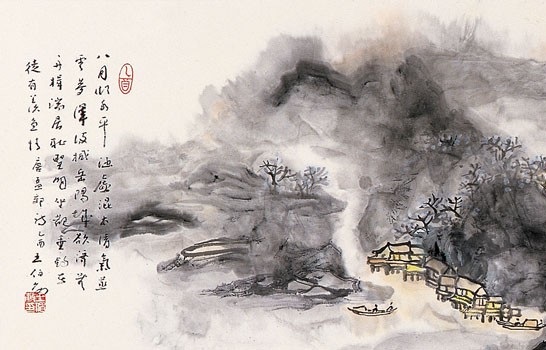 八月湖水平涵虛混太清氣蒸
雲夢澤波撼岳陽城欲濟無
舟楫端居耻聖明坐觀垂釣者
徒有羡魚情唐孟詩乙酉王伯